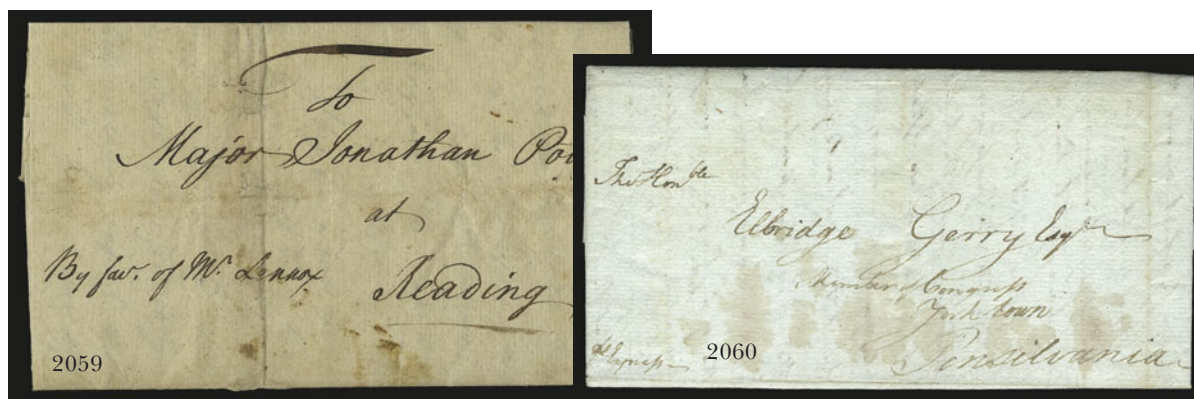 To
Major Jonathan
at
By fav.ʳ of Mʳ Lennox
Reading
2059
The Honᵇˡᵉ
Elbridge Gerry Esqʳ
Member of Congress
York town
Pensilvania
pʳ Express
2060